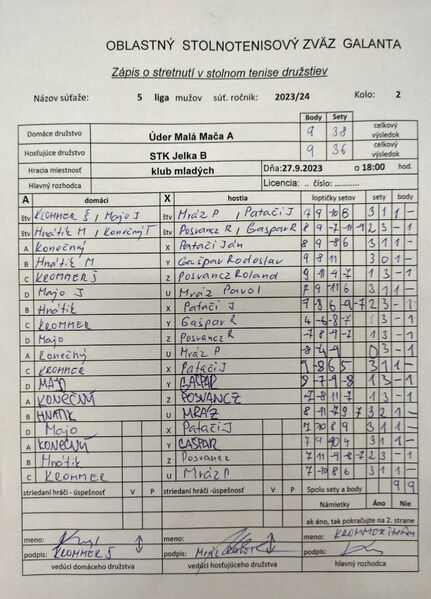 OBLASTNÝ STOLNOTENISOVÝ ZVÄZ GALANTA
Zápis o stretnutí v stolnom tenise družstiev
Názov súťaže: 5 liga mužov súť. ročník: 2023/24 Kolo: 2
Body Sety
Domáce družstvo Úder Malá Mača A 9 38 celkový výsledok
Hosťujúce družstvo STK Jelka B 9 36 celkový výsledok
Hracia miestnosť klub mladých Dňa:27.9.2023 o 18:00 hod.
Hlavný rozhodca Licencia: .. číslo:...........
A domáci X hostia loptičky setov sety body
štv KROMMER Š, Majo J štv Mráz P, Patači J 7 9 10 8 3 1 1 -
štv Hnátik M, Konečný štv Posvancz R, Gašpar R 8 9 -7 -11 -12 2 3 - 1
A Konečný X Patači Ján 8 9 -8 6 3 1 1 -
B Hnátik M Y Gašpar Rodoslav 9 8 11 3 0 1 -
C KROMMER Š Z Posvancz Roland 1 3 - 1
D Majo J U Mráz Pavol 7 9 11 6 3 1 1 -
B Hnátik X Patači J 9 -8 6 -9 -7 2 3 - 1
C KROMMER Y Gašpar R 4 -6 -8 -7 1 3 - 1
D Majo Z Posvancz R -7 8 -9 -7 1 3 - 1
A Konečný U Mráz P -8 -4 -9 0 3 - 1
C KROMMER X Patači J 9 -8 6 5 3 1 1 -
D MAJO Y GAŠPAR 8 -7 -9 -8 1 3 - 1
A KONEČNÝ Z POSVANCZ -7 8 -11 -7 1 3 - 1
B HNÁTIK U MRÁZ 8 -11 -7 9 7 3 2 1 -
D Majo X Patači J 7 -10 8 9 3 1 1 -
A KONEČNÝ Y GAŠPAR 3 1 1 -
B Hnátik Z Posvancz 2 3 - 1
C KROMMER U Mráz P 7 -10 8 6 3 1 1 -
striedaní hráči - úspešnosť V P striedaní hráči - úspešnosť V P Spolu sety a body 9 9
Námietky Áno Nie
ak áno, tak pokračujte na 2. strane
meno: meno: meno: KROMMER
podpis: KROMMER Š podpis: Mráz podpis:
vedúci domáceho družstva vedúci hosťujúceho družstva hlavný rozhodca